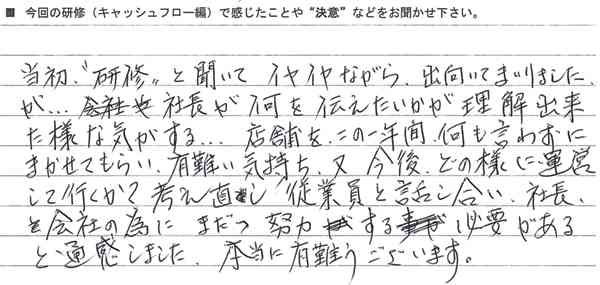 ■ 今回の研修（キャッシュフロー編）で感じたことや“決意”などをお聞かせ下さい。
当初、“研修”と聞いて イヤイヤながら、出向いてまいりました
が… 社長が何を伝えたいかが理解出来
た様な気がする… 店舗を、この一年間、何も言わずに
まかせてもらい、有難い気持ち、又 今後、どの様に運営
して行くか？考え直し 従業員と話し合い、社長、
会社の為に まだ 努力する必要がある
と通感しました。 本当に有難うございます。